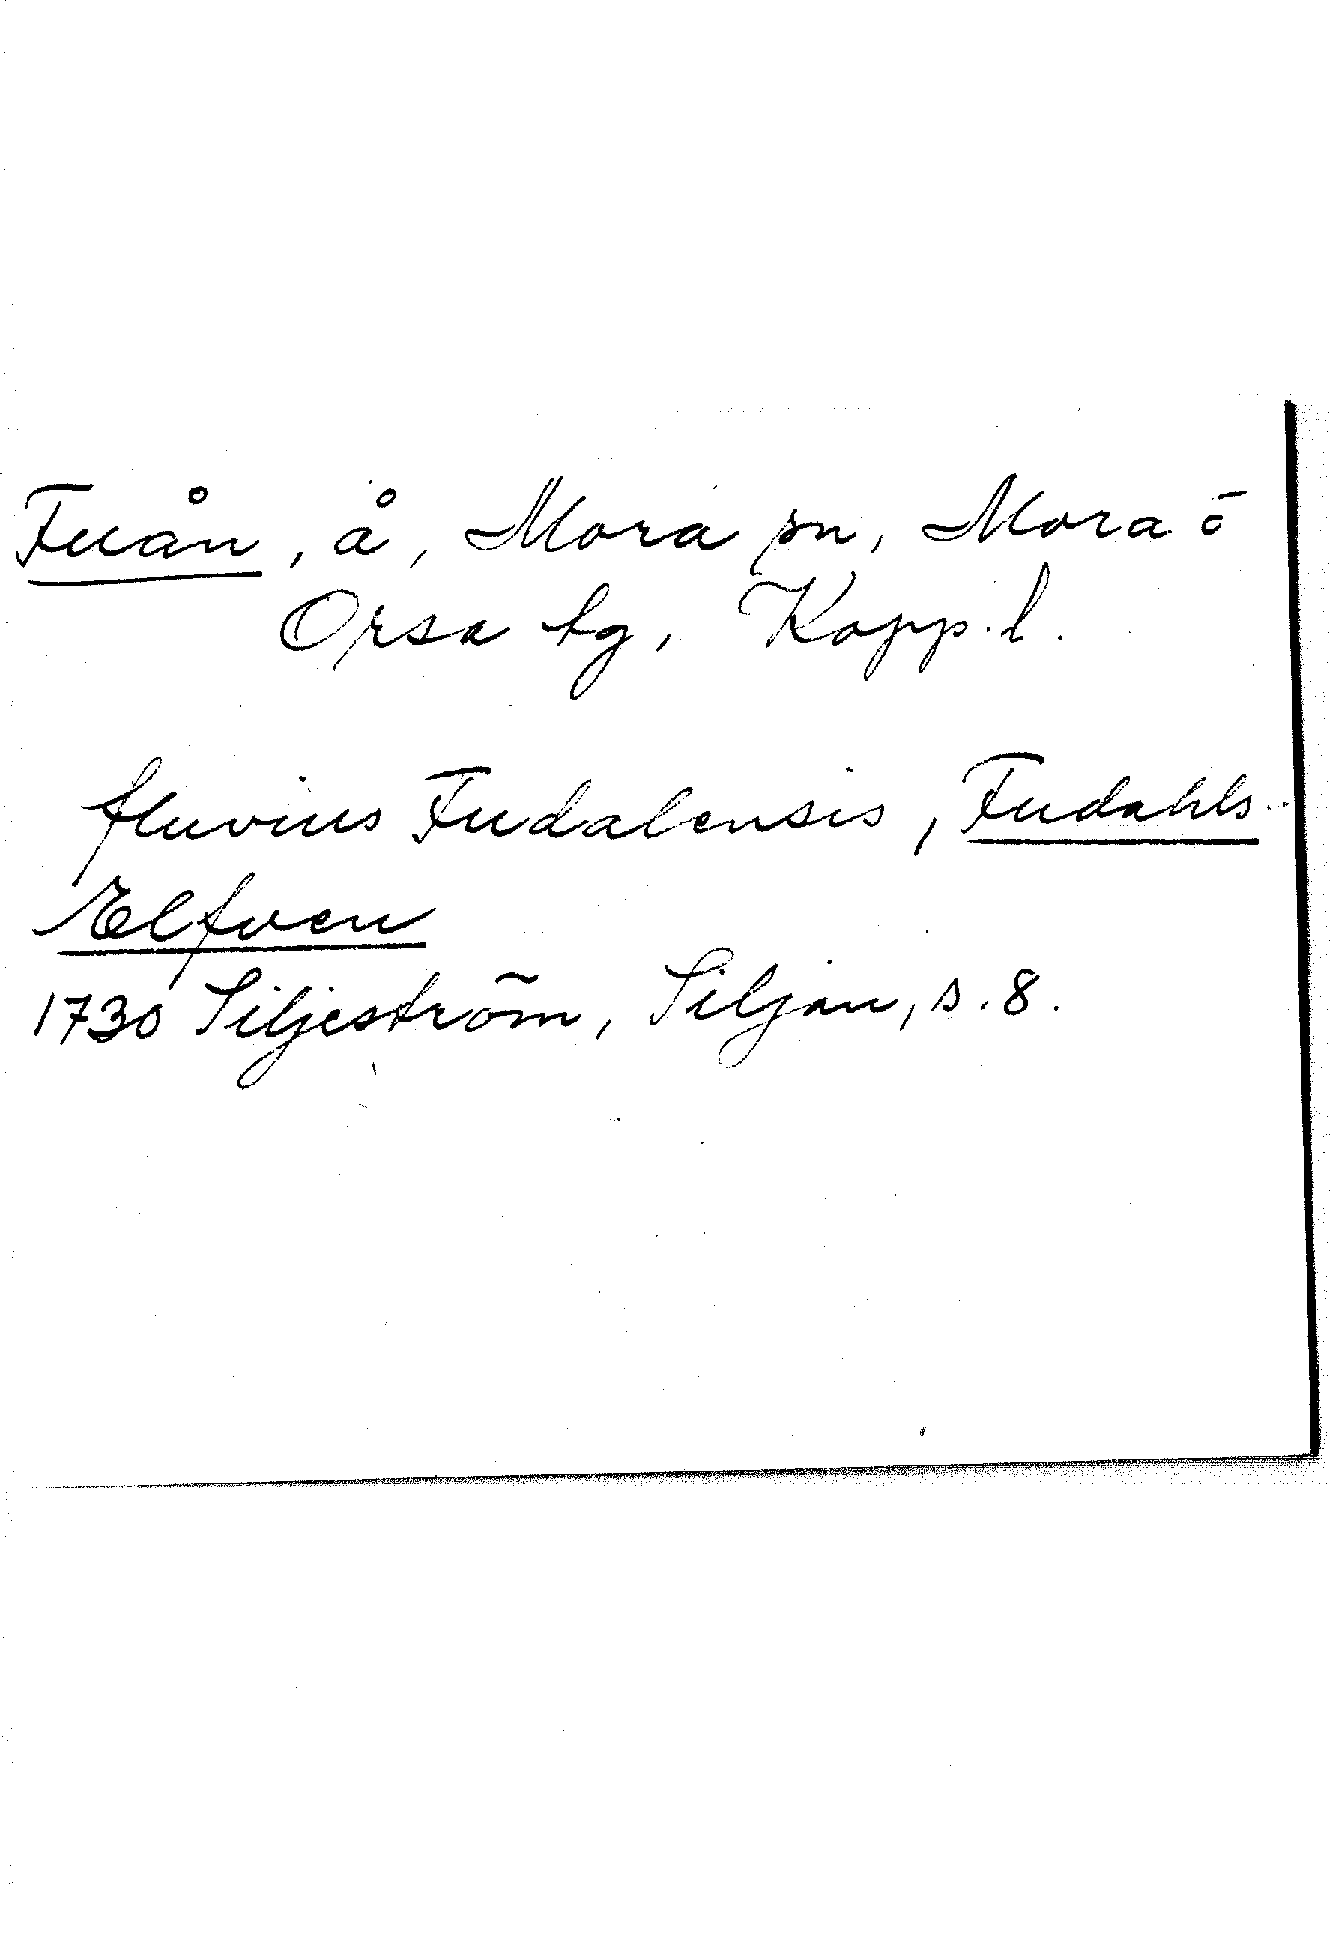 Fuån, å, Mora sn, Mora o
Orsa tg, Kopp. l.
fluvius Fudalensis, Fudahls
Elfven
1730 Siljeström, Siljan, s. 8.